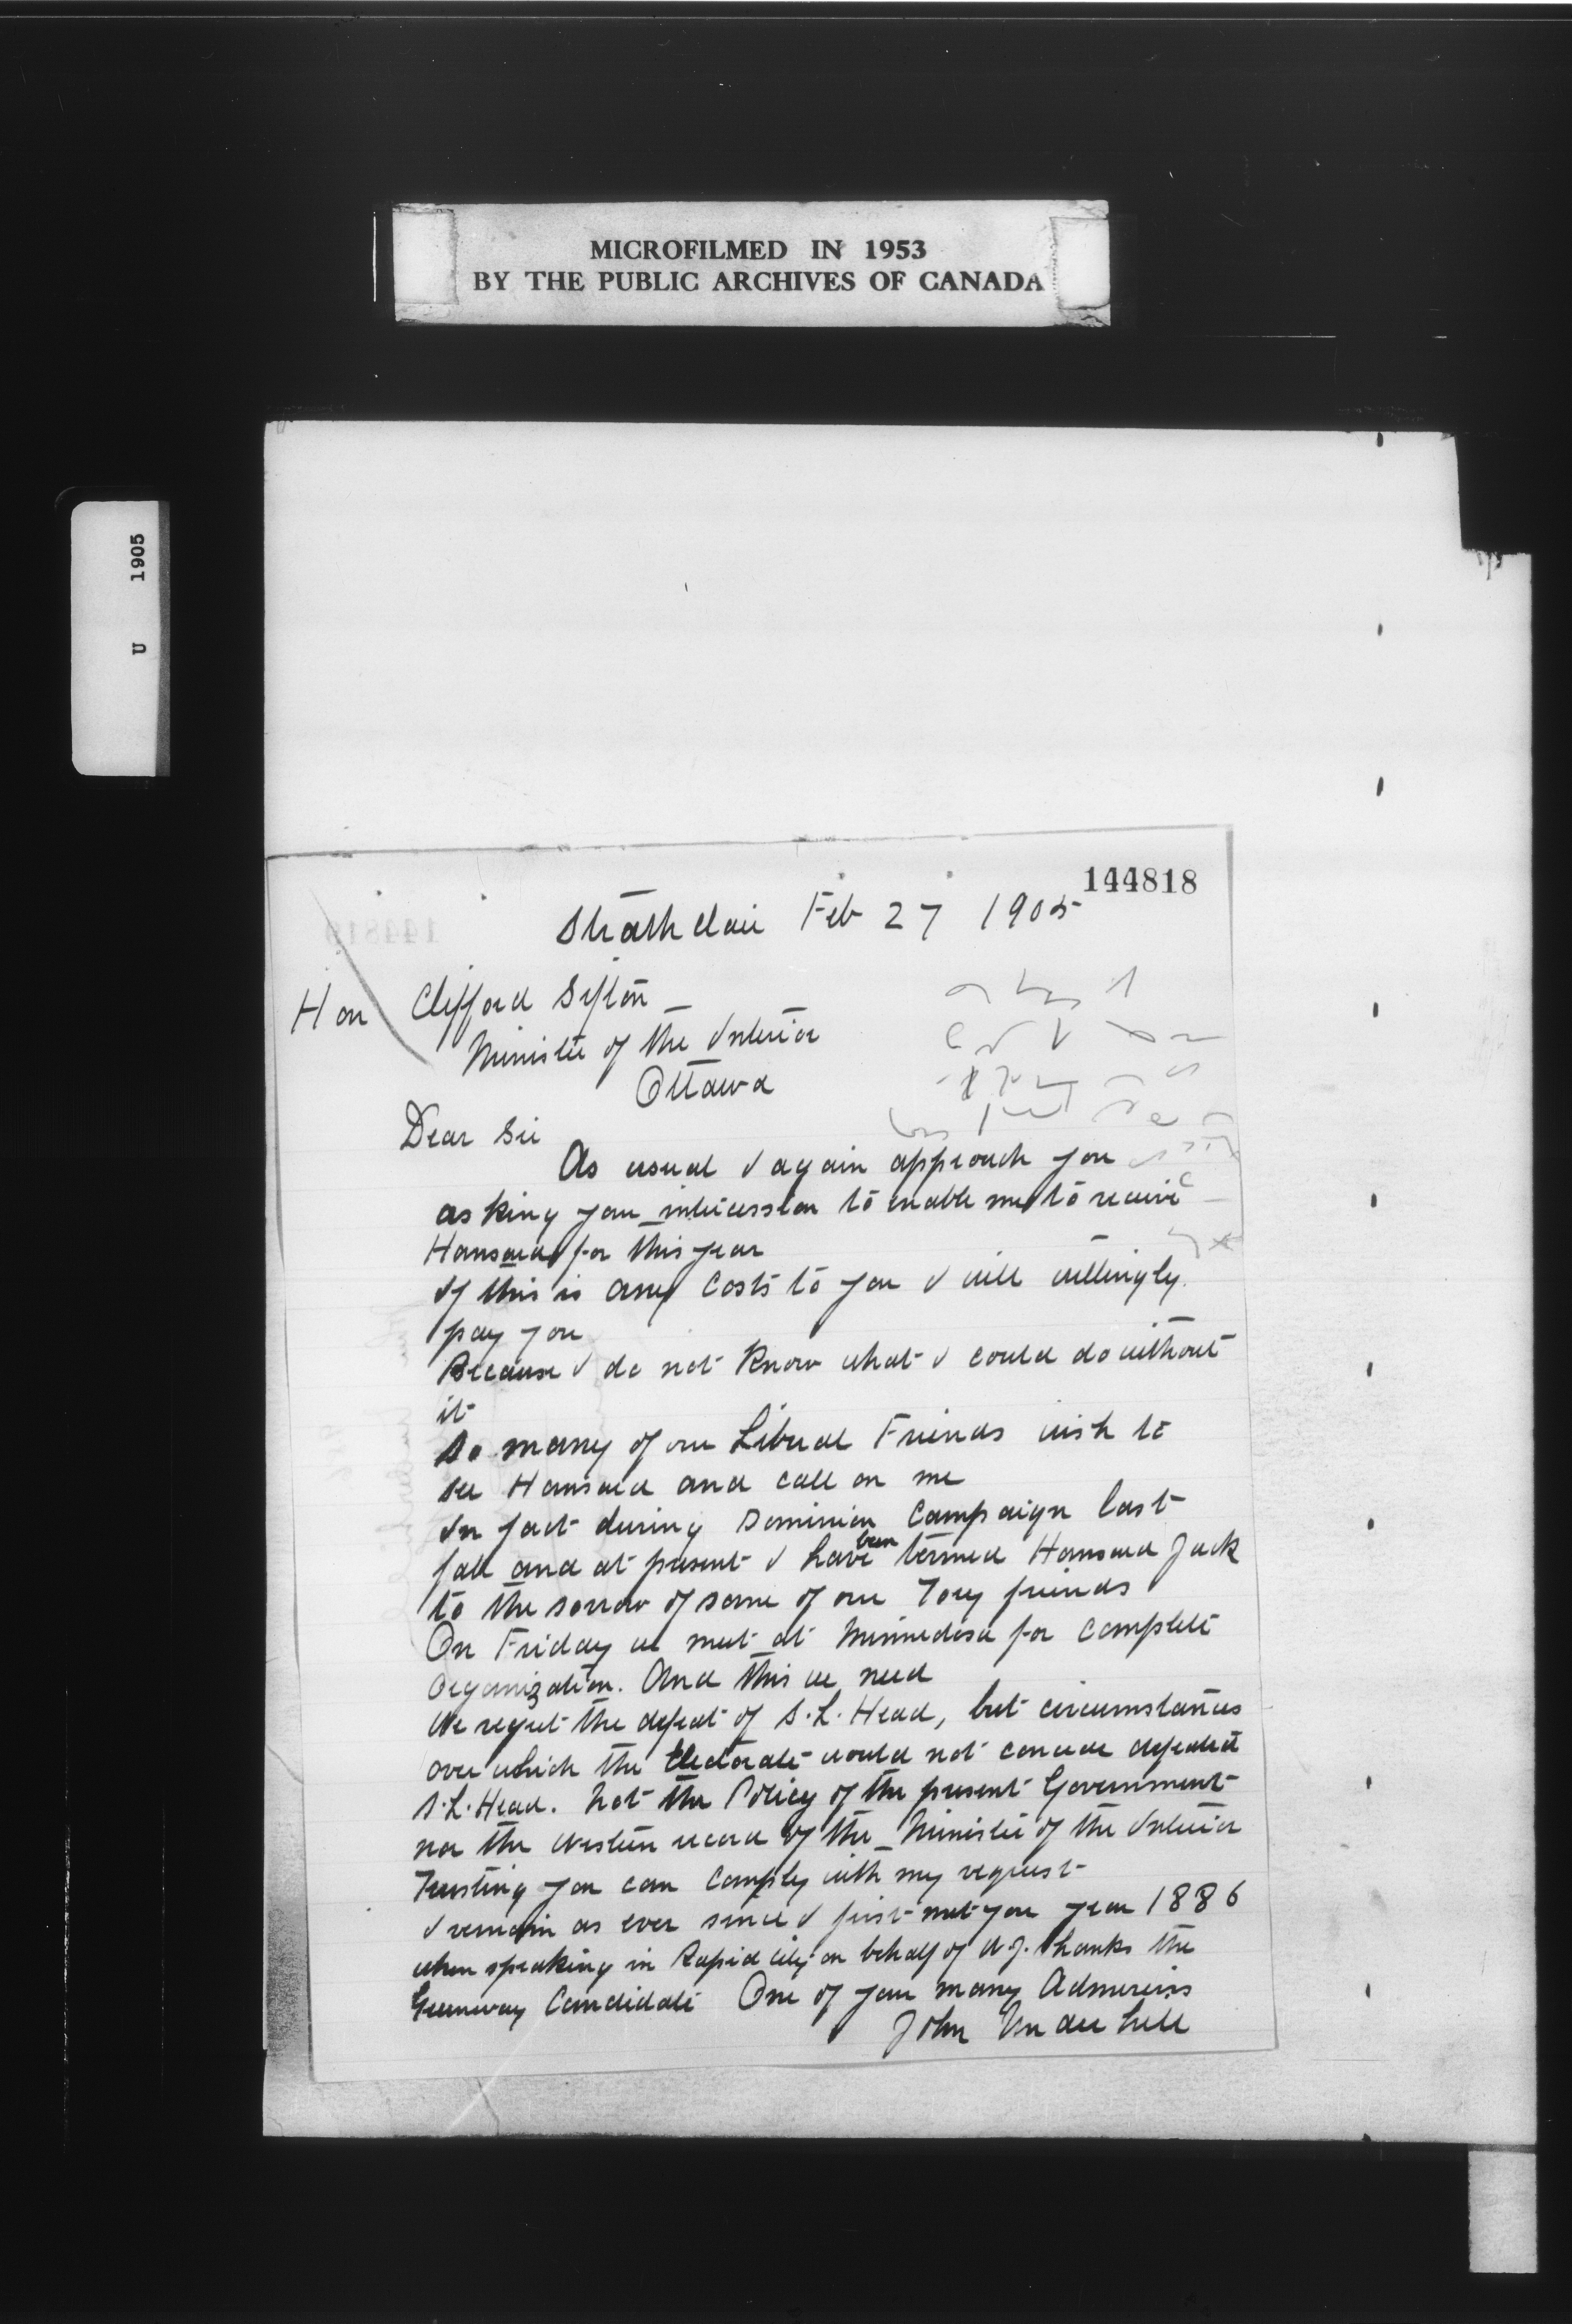 MICROFILMED IN 1953
BY THE PUBLIC ARCHIVES OF CANADA
U 1905
144818
Strathclair Feb 27 1905
Hon Clifford Sifton
Minister of the Interior
Ottawa
Dear Sir
As usual I again approach you
asking your intercession to enable me to receive
Hansard for this year
If this is any Costs to you I will willingly
pay you
Because I do not Know what I could do without
it
So many of our Liberal Friends wish to
see Hansard and call on me
In fact during Dominion Campaign last
fall and at present I have been termed Hansard Jack
to the sorrow of some of our Tory friends
On Friday we meet at Minnedosa for complete
Organization. And this we need
We regret the defeat of S. L. Head, but circumstances
over which the Electorate would not concede defeated
S. L. Head. Not the Policy of the present Government
nor the Western record of the Minister of the Interior
Trusting you can Comply with my request
I remain as ever since I first met you year 1886
when speaking in Rapid City on behalf of the
Greenway Candidate One of your many Admirers
John Underhill